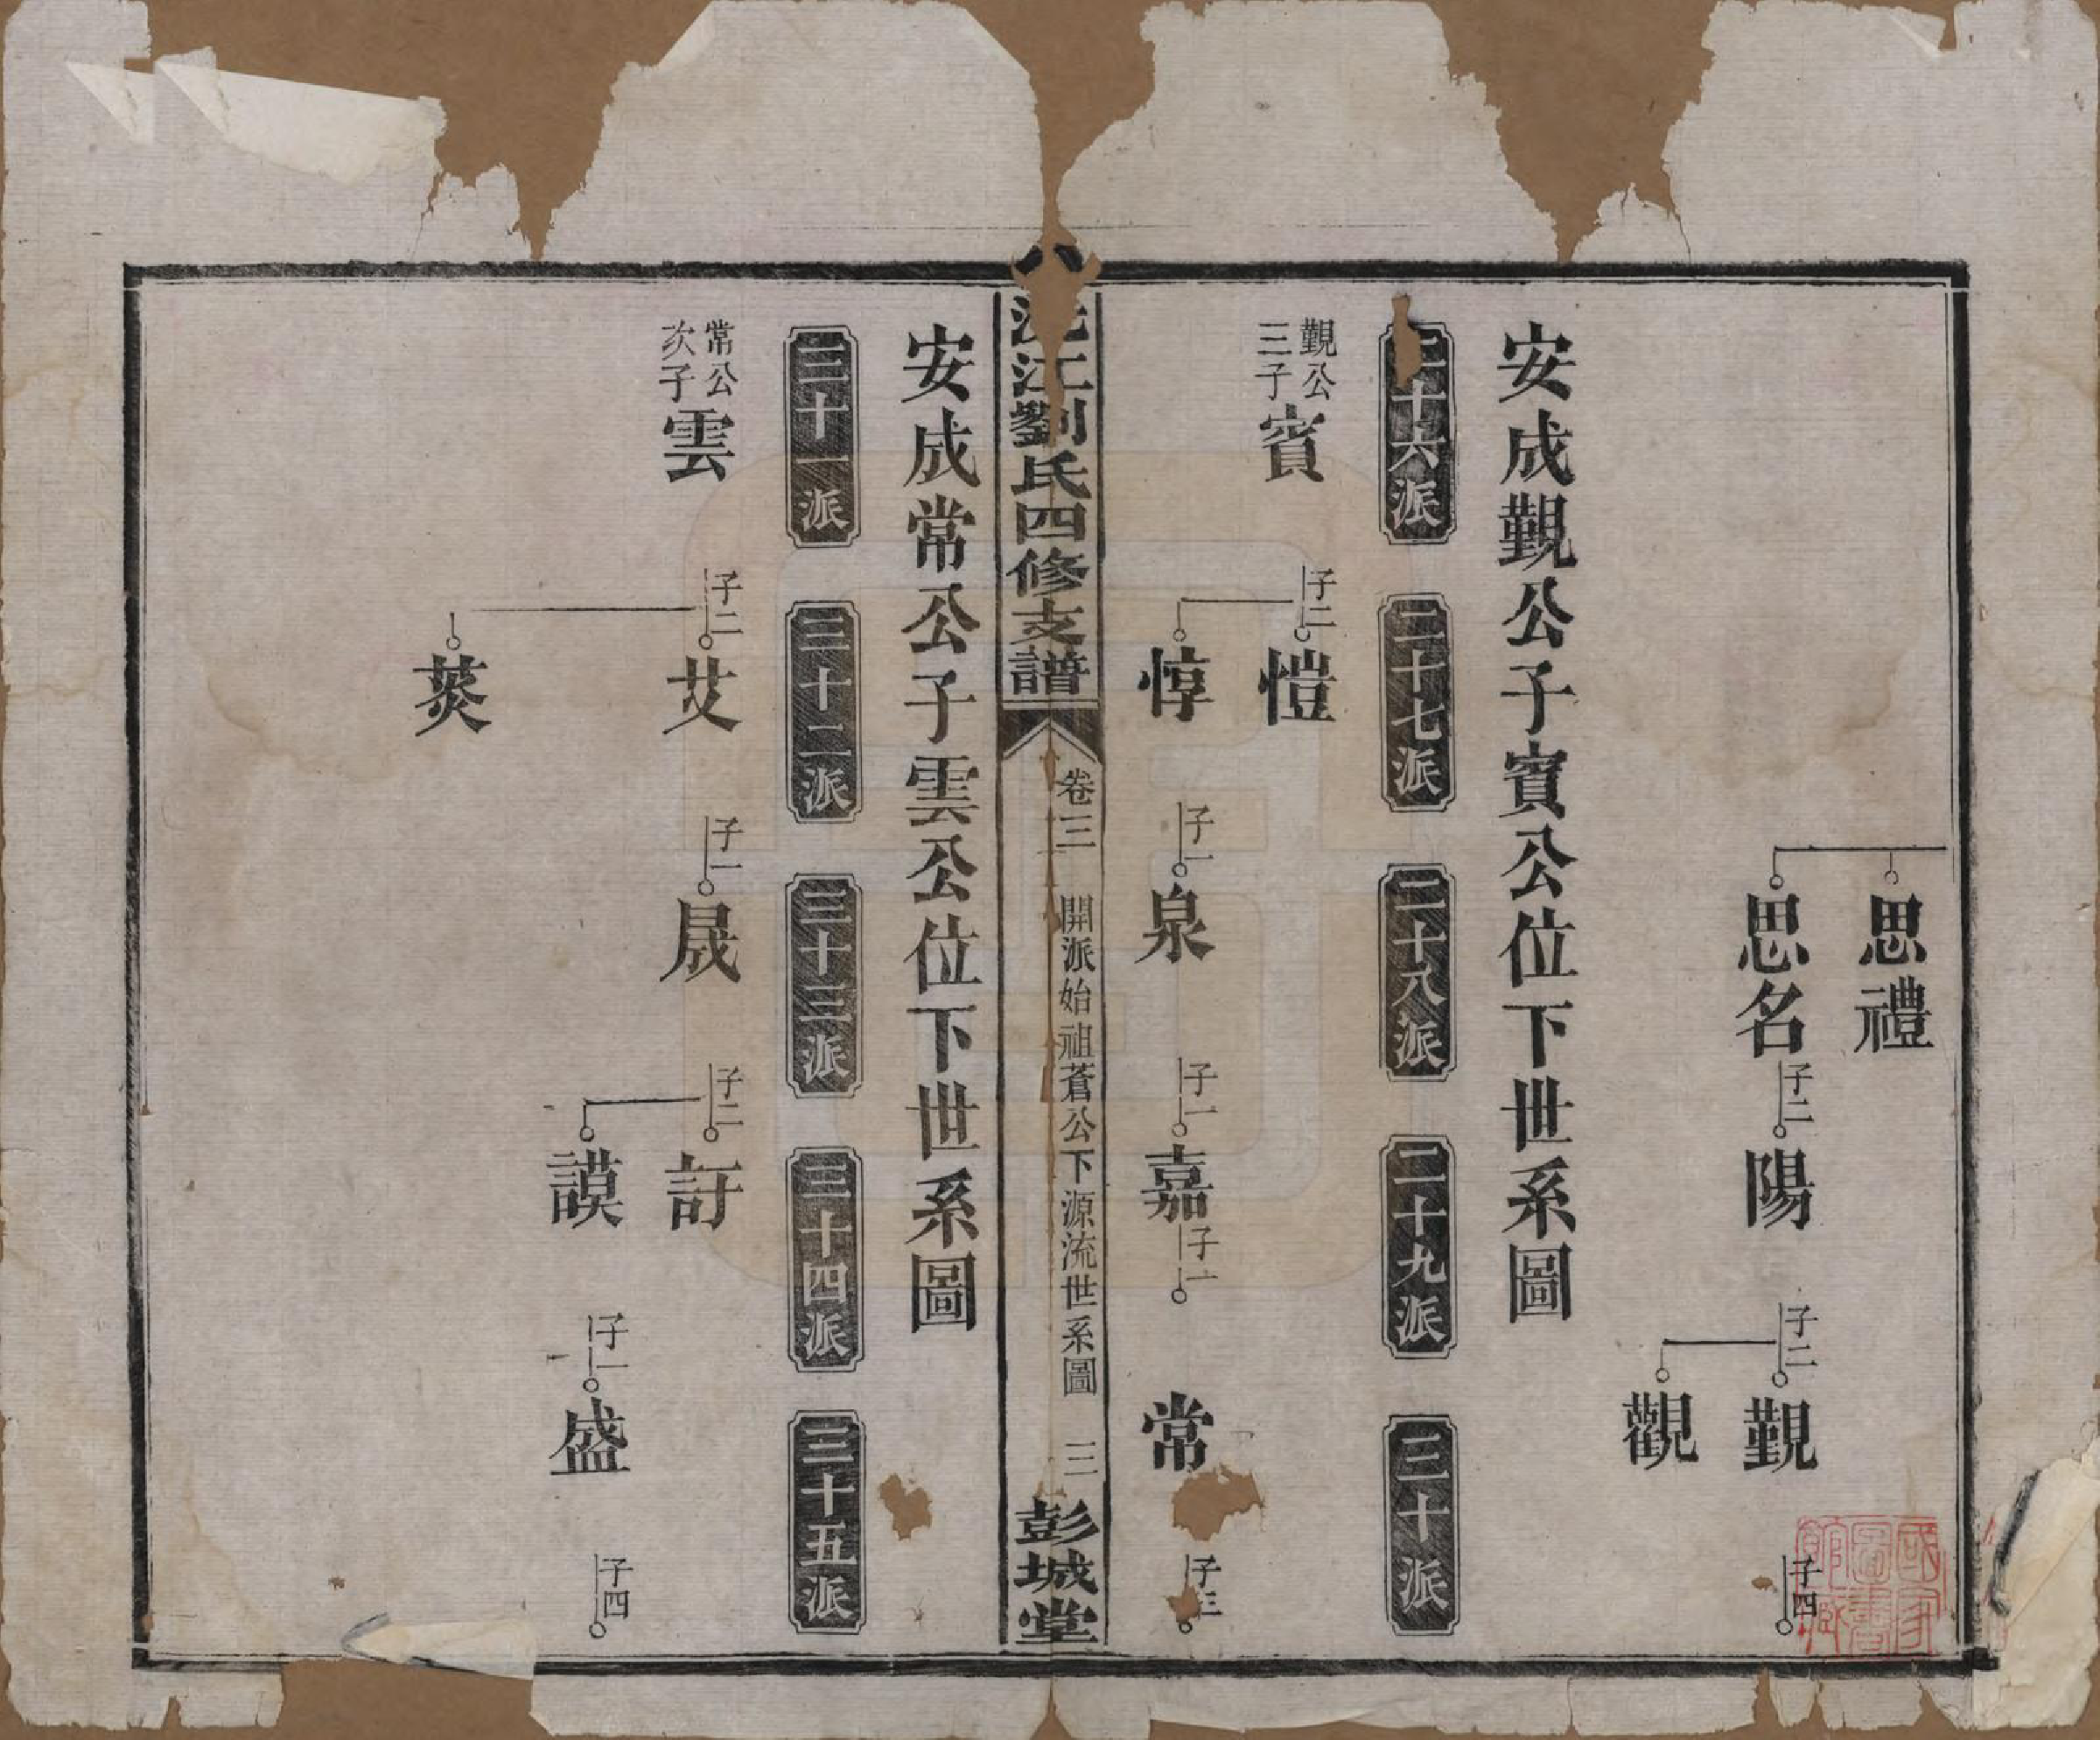 思禮
思名
子二
陽
子二
覲
觀
子四
安成覲公子賓公位下世系圖
十六派
二十七派
二十八派
二十九派
三十派
覲公三子
賓
子二
愷
惇
子一
泉
子一
嘉
子一
常
子三
江劉氏四修支譜
卷三
開派始祖蒼公下源流世系圖
三
彭城堂
安成常公子雲公位下世系圖
三十一派
三十二派
三十三派
三十四派
三十五派
常公次子
雲
子二
艾
葵
子一
晟
子二
訏
謨
子一
盛
子四
國家圖書館藏